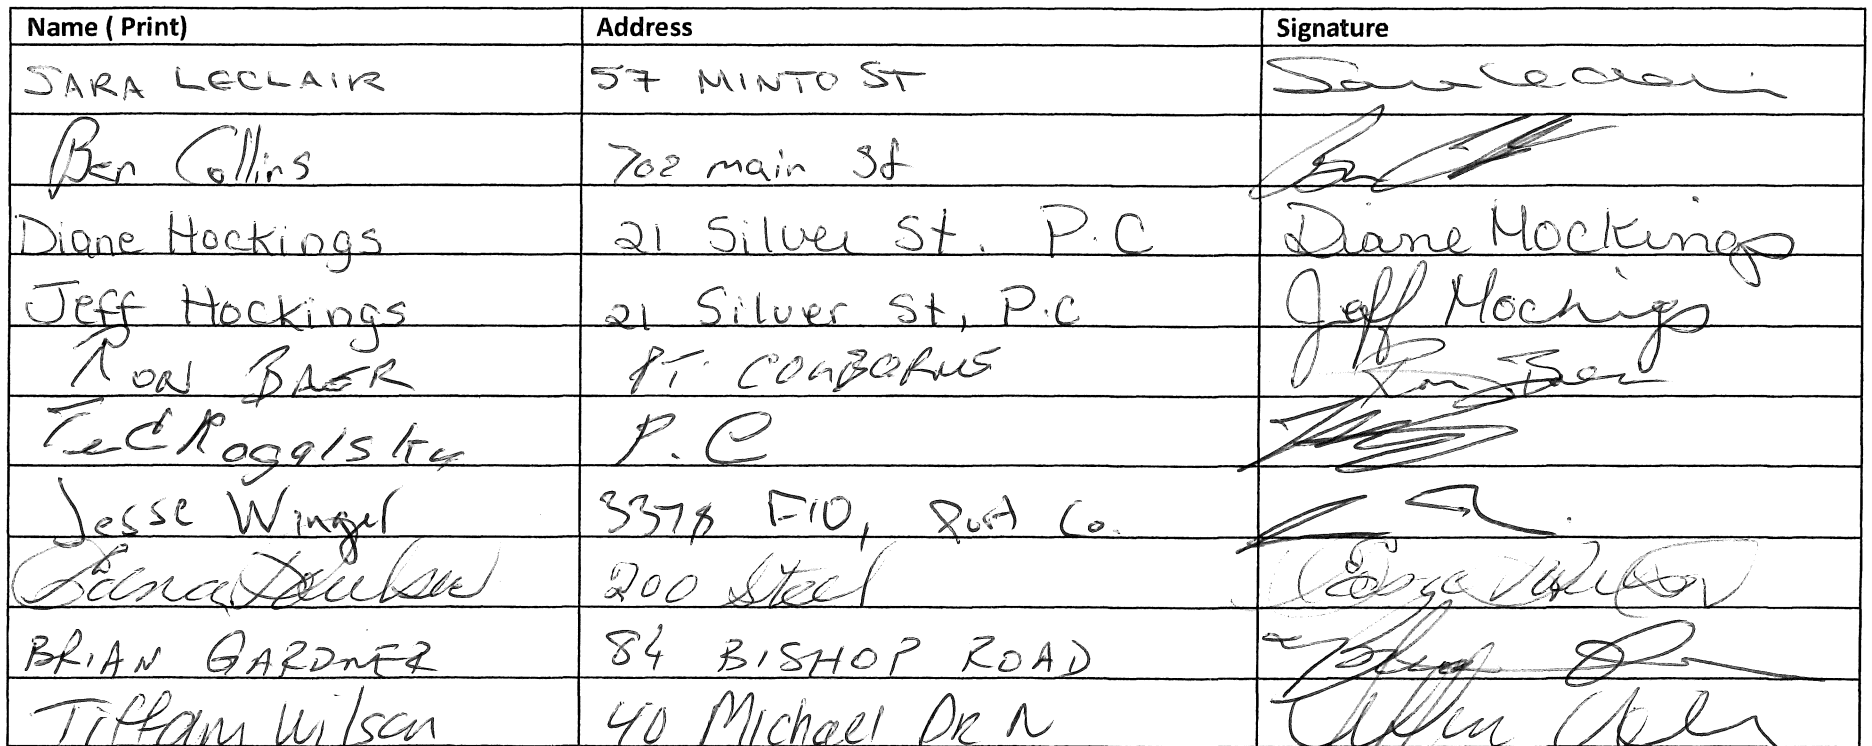 Name ( Print) Address Signature
SARA LECLAIR 57 MINTO ST
Ben Collins 702 main St
Diane Hockings 21 Silver St. P.C Diane Hockings
Jeff Hockings 21 Silver St, P.C Jeff Hockings
RON BAER PT. COLBORNE Ron Baer
Ted P.C
Jesse Wingel 3378 F10, Port Co.
200 Steel
BRIAN GARDNER 84 BISHOP ROAD
Tiffany Wilson 40 Michael Dr N